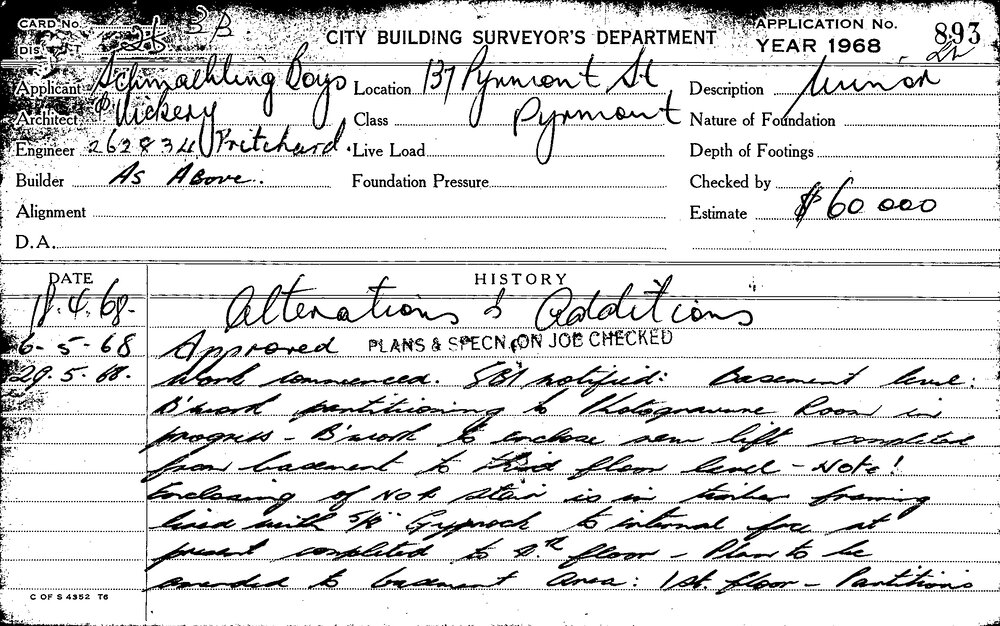 CARD No.
CITY BUILDING SURVEYOR'S DEPARTMENT
APPLICATION No. 893
YEAR 1968
Applicant Schmaehling Boys
Location 137 Pyrmont St
Description Minor
Architect & Vickery
Class Pyrmont
Nature of Foundation
Engineer 262834 Pritchard.
Live Load
Depth of Footings
Builder As Above.
Foundation Pressure
Checked by
Alignment
Estimate $60 000
D.A.
DATE HISTORY
18.4.68. Alterations & Additions
6-5-68 Approved PLANS & SPECN. ON JOB CHECKED
29.5.68. Work commenced. notified: Basement level:
B'work partitioning to Photogravure Room in
progress - B'work to enclose new lift completed
from basement to third floor level - Note!
Enclosing of No 2 stair is in timber framing
lined with 5/8" Gyprock to internal face at
present completed to 4th floor - Plan to be
amended to basement area: 1st. floor - Partitions
C OF S 4352 T6